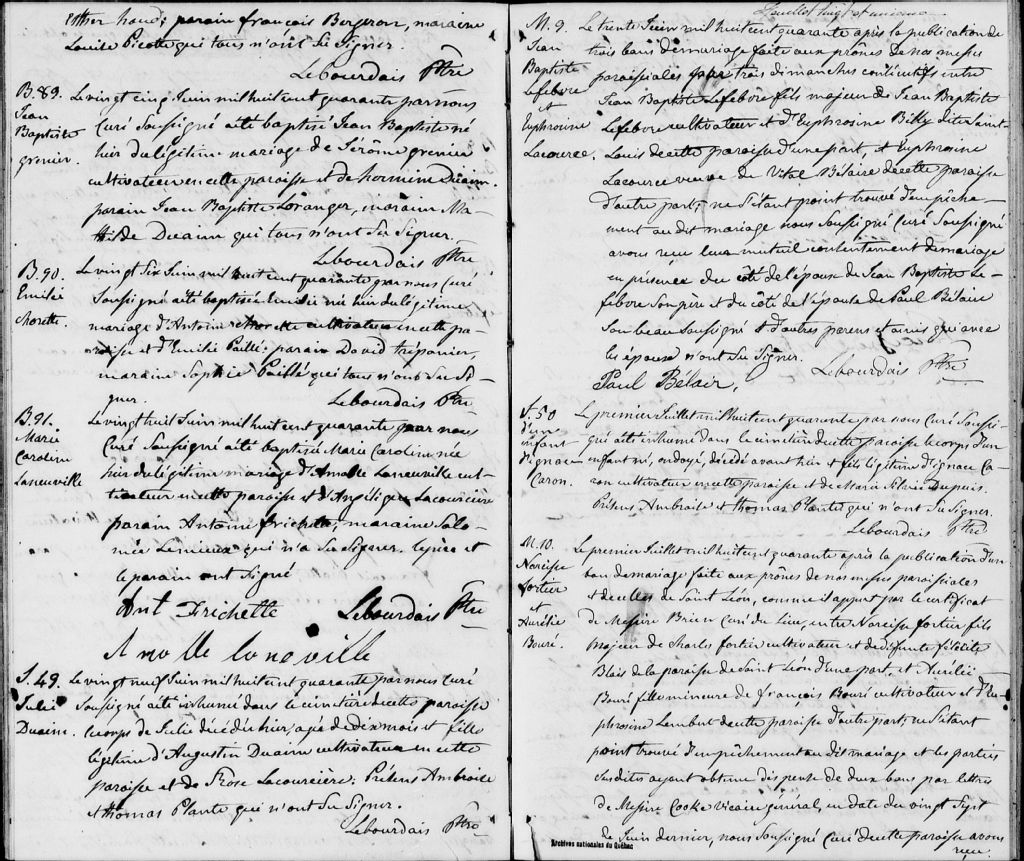 Esther houde parain françois Bergeron, maraine
Louise Picote qui tous n'ont Su Signer.
Lebourdais Ptre
B. 89.
Jean
Baptiste
grenier.
Le vingt cinq Juin mil huit cent quarante par nous
Curé Soussigné a été baptisé Jean Baptiste né
hier du légitime mariage de Jerôme grenier
cultivateur en cette paroisse et de hermine Duaim.
parain Jean Baptiste Loranger, maraine Ma-
thilde Duaim qui tous n'ont Su Signer.
Lebourdais Ptre
B. 90.
Emilie
chorette.
Le vingt Six Juin mil huit cent quarante par nous Curé
Soussigné a été baptisée Emilie née hier du légitime
mariage d'Antoine chorette cultivateur en cette pa-
roisse et d'Emilie Paillé; parain David trépanier,
maraine Sophie Paillé qui tous n'ont Su Si-
gner.
Lebourdais Ptre
B. 91.
Marie
Caroline
Laneuville
Le vingt huit Juin mil huit cent quarante par nous
Curé Soussigné a été baptisée Marie Caroline née
hier du légitime mariage d'Amable Laneuville cul-
tivateur en cette paroisse et d'Angélique Lacourcière
parain Antoine frichette; maraine Salo-
mée Lemieux qui n'a Su Signer. le père et
le parain ont Signé
Ant Frichette Lebourdais Ptre
Amable laneville
S. 49.
Julie
Duaim.
Le vingt neuf Juin mil huit cent quarante par nous Curé
Soussigné a été inhumé dans le cimetière de cette paroisse
le corps de Julie décédée hier, agée de dix mois et fille
légitime d'Augustin Duaim cultivateur en cette
paroisse et de Rose Lacourcière; Présens Ambroise
et thomas Plante qui n'ont Su Signer.
Lebourdais Ptre
feuillet huit et unième
M. 9.
Jean
Baptiste
Lefebvre
et
Euphrosine
Lacource.
Le trente Juin mil huit cent quarante après la publication de
trois bans de mariage faite aux prônes de nos messes
paroissiales par trois dimanches consécutifs entre
Jean Baptiste Lefebvre fils majeur de Jean Baptiste
Lefebvre cultivateur et d'Euphrosine Billy dite Saint-
Louis de cette paroisse d'une part, et Euphrosine
Lacource veuve de Vital Bélaire de cette paroisse
d'autre part; ne S'étant point trouvé d'empêche-
ment au dit mariage nous Soussigné Curé Soussigné
avons recu leur mutuel consentement de mariage
en présence du côté de l'époux de Jean Baptiste Le-
febvre Son père et du côté de l'épouse de Paul Bélair
Son beau Soussigné et d'autres parens et amis qui avec
les époux n'ont Su Signer.
Lebourdais Ptre
Paul Bélair,
S. 50
d'un
enfant
d'ignace
Caron.
Le premier Juillet mil huit cent quarante par nous Curé Soussi-
gné a été inhumé dans le cimetière de cette paroisse le corps d'un
enfant né, ondoyé, décédé avant hier et fils légitime d'ignace Ca-
ron cultivateur en cette paroisse et de Marie Silvie Dupuis.
Présens, Ambroise et thomas Plante qui n'ont Su Signer.
Lebourdais Ptre
M. 10.
Narcisse
fortier
et
Aurélie
Bouré.
Le premier Juillet mil huit cent quarante après la publication d'un
ban de mariage faite aux prônes de nos messes paroissiales
et de celles de Saint Léon, comme il appert par le certificat
de Messire Brien Curé du Lieu, entre Narcisse fortier fils
Majeur de Charles fortier cultivateur et de défunte félicité
Blais de la paroisse de Saint Léon d'une part, et Aurélie
Bouré fille mineure de françois Bouré cultivateur et d'Eu-
phrosine Lambert de cette paroisse d'autre part; ne S'étant
point trouvé d'empêchement au dit mariage et les parties
Susdites ayant obtenu dispense de deux bans par lettres
de Messire Cooke vicaire général, en date du vingt Sept
de Juin dernier, nous Soussigné Curé de cette paroisse avons
recu
Archives nationales du Québec